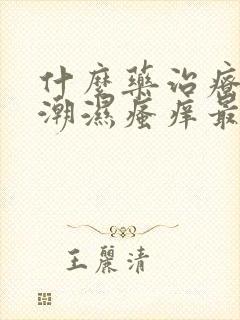 什麼藥治療
潮濕瘙痒最
王麗清